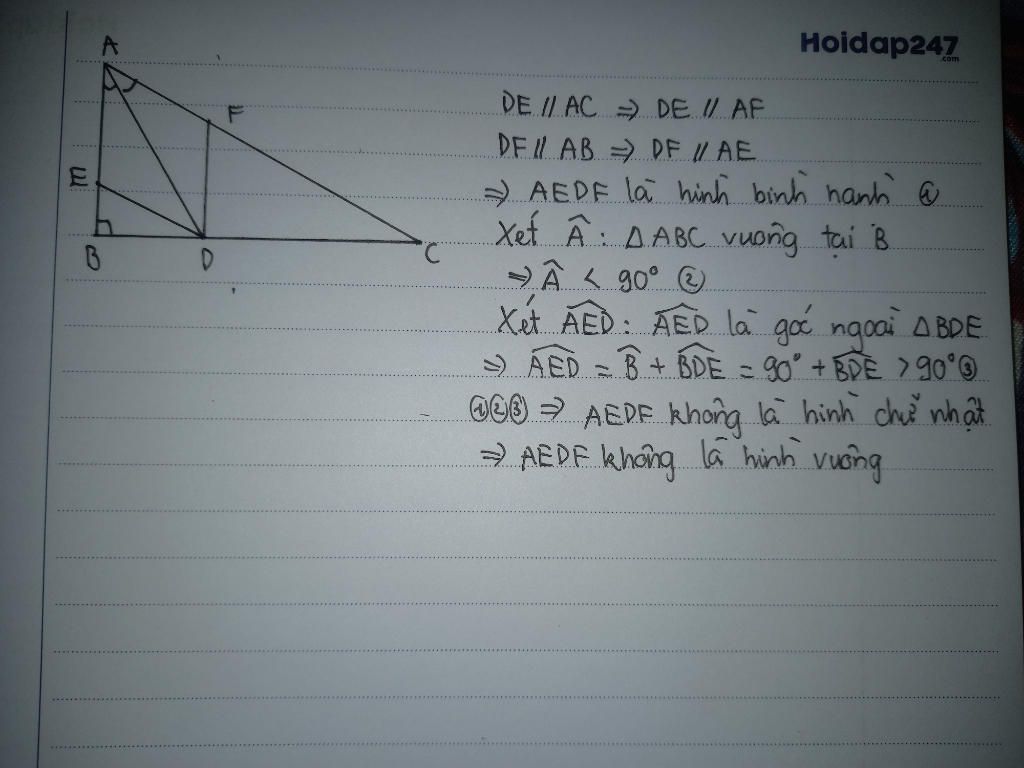 Hoidap247
.com
A
F
E
B
D
C
DE // AC ⇒ DE // AF
DF // AB ⇒ DF // AE
⇒ AEDF là hình bình hành ①
Xét Â : △ABC vuông tại B
⇒ Â < 90° ②
Xét \widehat{AED} : \widehat{AED} là góc ngoài △BDE
⇒ \widehat{AED} = \widehat{B} + \widehat{BDE} = 90° + \widehat{BDE} > 90° ③
①②③ ⇒ AEDF không là hình chữ nhật
⇒ AEDF không là hình vuông